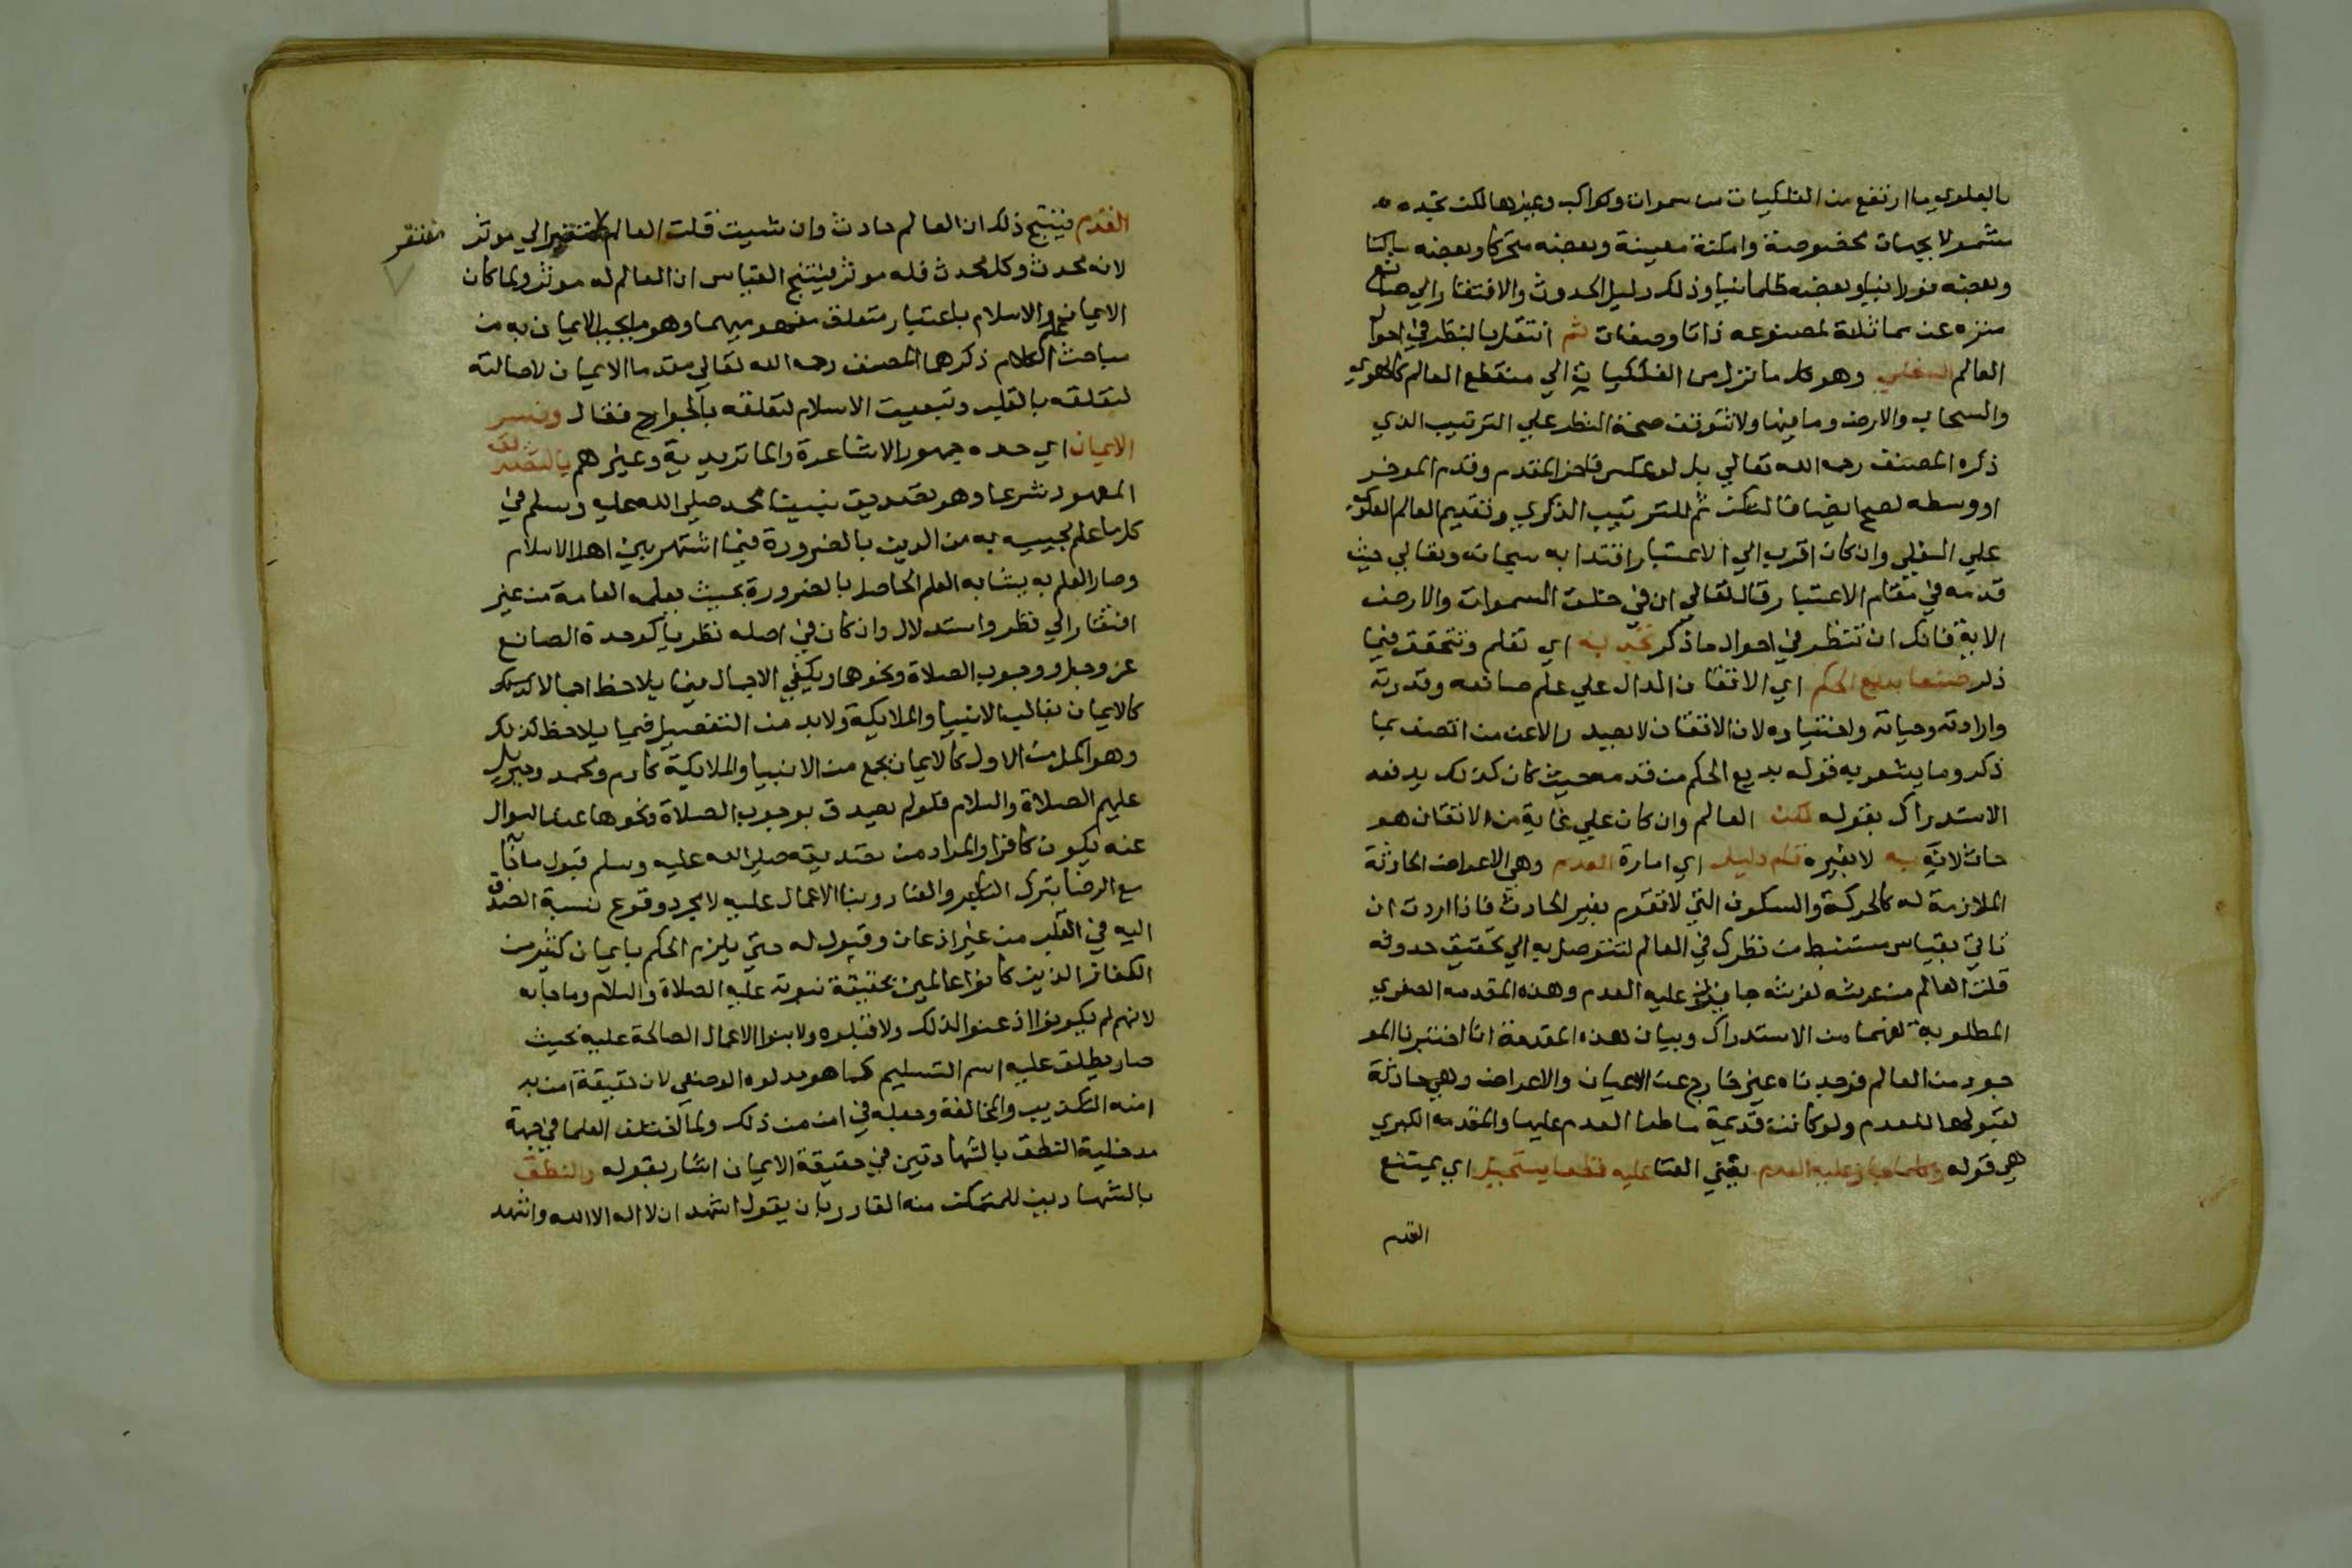 بالعلوي ما ارتفع من الفلكيات من سموات وكواكب وغيرها لكن تجده
مشمولا بجهات مخصوصة وامكنة معينة وبعضه متحركا وبعضه ساكنا
وبعضه نورانيا وبعضه ظلمانيا وذلك دليل الحدوث والافتقار الي صانع
منزه عن مماثلة لمصنوعه ذاتا وصفات ثم انتقل بالنظر في احوال
العالم السفلي وهو كل ما نزل من الفلكيات الي منقطع العالم كالهوي
والسحاب والارض وما فيها ولا تتوقف صحة النظر علي الترتيب الذي
ذكره المصنف رحمه الله تعالي بل لو عكس فاخر المقدم وقدم الموخر
او وسطه لصح ايضا فالنكت ثم للترتيب الذكري وتقديم العالم العلوي
علي السفلي وان كان اقرب الي الاعتبار اقتدا به سبحانه وتعالي حيث
قدمه في مقام الاعتبار قال تعالي ان في خلق السموات والارض
الاية فانك ان تنظر في احوال ما ذكر تجد به اي تعلم وتتحقق فيما
ذكر صنعا بديع الحكم اي الاتقان الدال علي علم صانعه وقدرته
وارادته وحياته واختياره لان الاتقان لا يصدر الا عن من اتصف بما
ذكر وما يشعر به قوله بديع الحكم من قدمه حيث كان كذلك يدفعه
الاستدراك بقوله لكن العالم وان كان علي غاية من الاتقان هو
حادث لانه به لا بغيره قام دليل اي امارة العدم وهي الاعراض الحادثة
الملازمة له كالحركة والسكون التي لا تقوم بغير الحادث فاذا اردت ان
تاتي بقياس مستنبط من نظرك في العالم لتتوصل به الي تحقيق حدوثه
قلت العالم من عرشه لفرشه جايز عليه العدم وهذه المقدمه الصغري
المطلوبة لفهمها من الاستدراك وبيان هذه المقدمة انا اختبرنا المو
جود من العالم فوجدناه غير خارج عن الاعيان والاعراض وهي حادثة
لقبولها للعدم ولو كانت قديمة ما طرا العدم عليها والمقدمه الكبري
هي قوله وكل ما جاز عليه العدم يعني الفنا عليه قطعا يستحيل اي يمتنع
القدم
القدم فينتج ذلك ان العالم حادث وان شيت قلت العالم مفتقر الي موثر
مفتقر
لانه محدث وكل محدث فله موثر فينتج القياس ان العالم له موثر ولما كان
الايمان والاسلام باعتبار متعلق مفهوميهما وهو ما يجب الايمان به من
مباحث الكلام ذكرهما المصنف رحمه الله تعالي مقدما الايمان لاصالته
لتعلقه بالقلب وتبعيت الاسلام لتعلقه بالجوارح فقال وفسر
الايمان اي حده جمهور الاشاعرة والماتريدية وغيرهم بالتصديق
المعهود شرعا وهو تصديق نبينا محمد صلي الله عليه وسلم في
كل ما علم مجييه به من الدين بالضرورة فيما اشتهر بين اهل الاسلام
وصار العلم به يشابه العلم الحاصل بالضرورة بحيث يعلمه العامة من غير
افتقار الي نظر واستدلال وان كان في اصله نظريا كوحدة الصانع
عز وجل ووجوب الصلاة ونحوها ويكفي الاجمال فيما يلاحظ اجمالا كذلك
كالايمان بغالب الانبيا والملايكة ولا بد من التفصيل فيما يلاحظ كذلك
وهو اكمل من الاول كالايمان بجمع من الانبيا والملايكة كادم ومحمد وجبريل
عليهم الصلاة والسلام فلو لم يصدق بوجوب الصلاة ونحوها عند السوال
عنه يكون كافرا والمراد من تصديقه صلي الله عليه وسلم قبول ما
مع الرضا بترك التكبر والعناد وبنا الاعمال عليه لا مجرد وقوع نسبة الصدق
اليه في القلب من غير اذعان وقبول له حتي يلزم الحكم بايمان كثير من
الكفار الذين كانوا عالمين بحقيقة نبوته عليه الصلاة والسلام وما جا به
لانهم لم يكونوا اذعنوا لذلك ولا قبلوه ولا بنوا الاعمال الصالحة عليه بحيث
صار يطلق عليه اسم التسليم كما هو مدلوله الوضعي لان حقيقة امن به
امنه التكذيب والمخالفة وجعله في امن من ذلك ولما اختلف العلما في جهة
مدخلية النطق بالشهادتين في حقيقة الايمان اشار بقوله والنطق
بالشهادتين للمتمكن منه القادر بان يقول اشهد ان لا اله الا الله واشهد